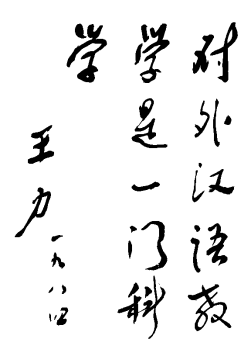 对外汉语教
学是一门科
学
王力
一九八四